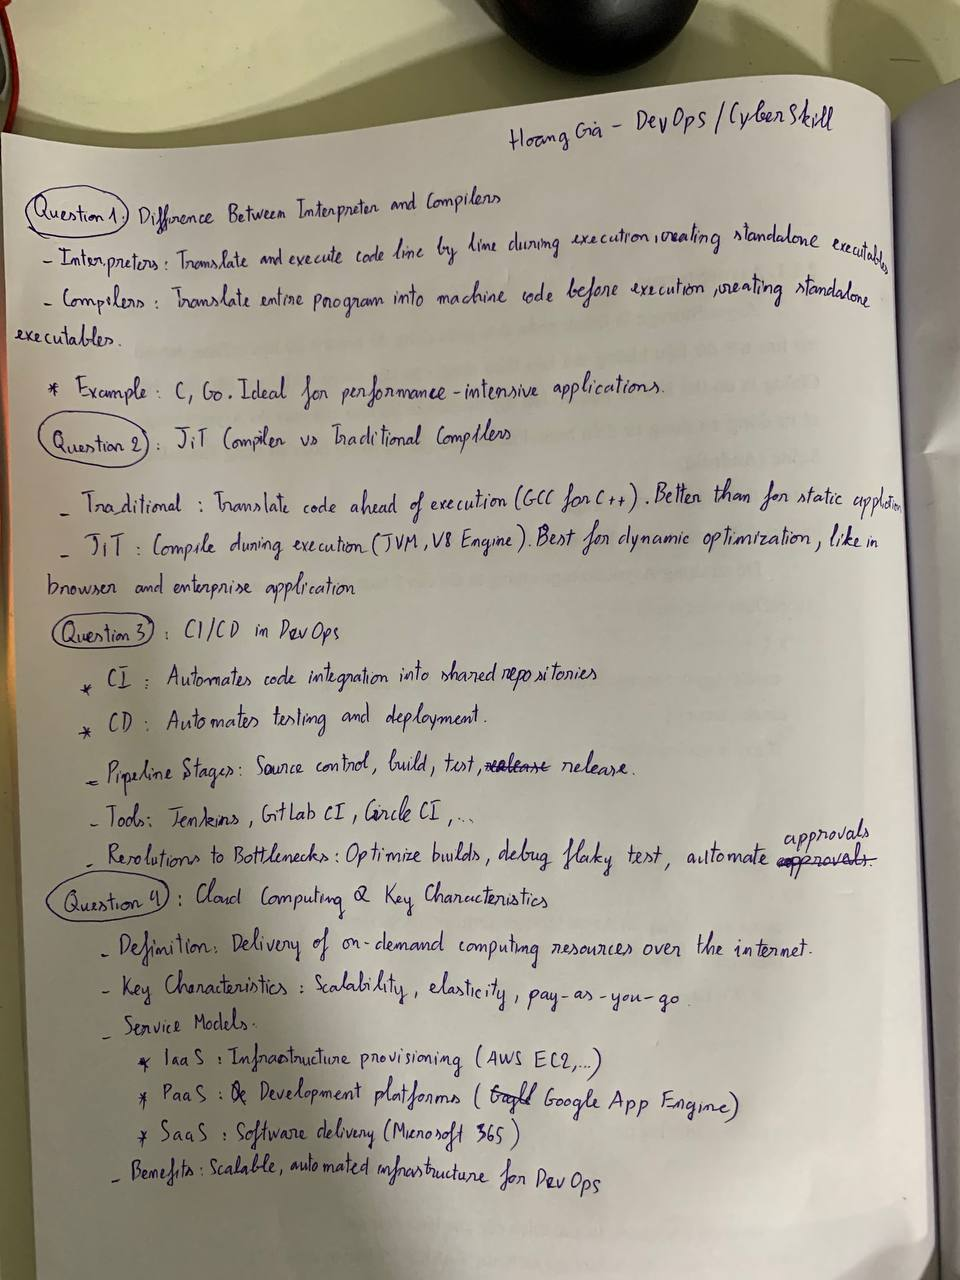 Hoang Gia - DevOps / CyberSkill
Question 1: Difference Between Interpreter and Compilers
- Interpreters: Translate and execute code line by line during execution, creating standalone executables
- Compilers: Translate entire program into machine code before execution, creating standalone
executables.
* Example: C, Go. Ideal for performance-intensive applications.
Question 2: JiT Compiler vs Traditional Compilers
- Traditional: Translate code ahead of execution (GCC for C++). Better than for static application
- JiT: Compile during execution (JVM, V8 Engine). Best for dynamic optimization, like in
browser and enterprise application
Question 3: CI/CD in DevOps
* CI: Automates code integration into shared repositories
* CD: Automates testing and deployment.
- Pipeline Stages: Source control, build, test, release release.
- Tools: Jenkins, GitLab CI, Circle CI,...
approvals
- Resolutions to Bottlenecks: Optimize builds, debug flaky test, automate approvals.
Question 4: Cloud Computing & Key Characteristics
- Definition: Delivery of on-demand computing resources over the internet.
- Key Characteristics: Scalability, elasticity, pay-as-you-go
- Service Models.
* IaaS: Infrastructure provisioning (AWS EC2,...)
* PaaS: Development platforms (Google App Engine)
* SaaS: Software delivery (Microsoft 365)
- Benefits: Scalable, automated infrastructure for DevOps